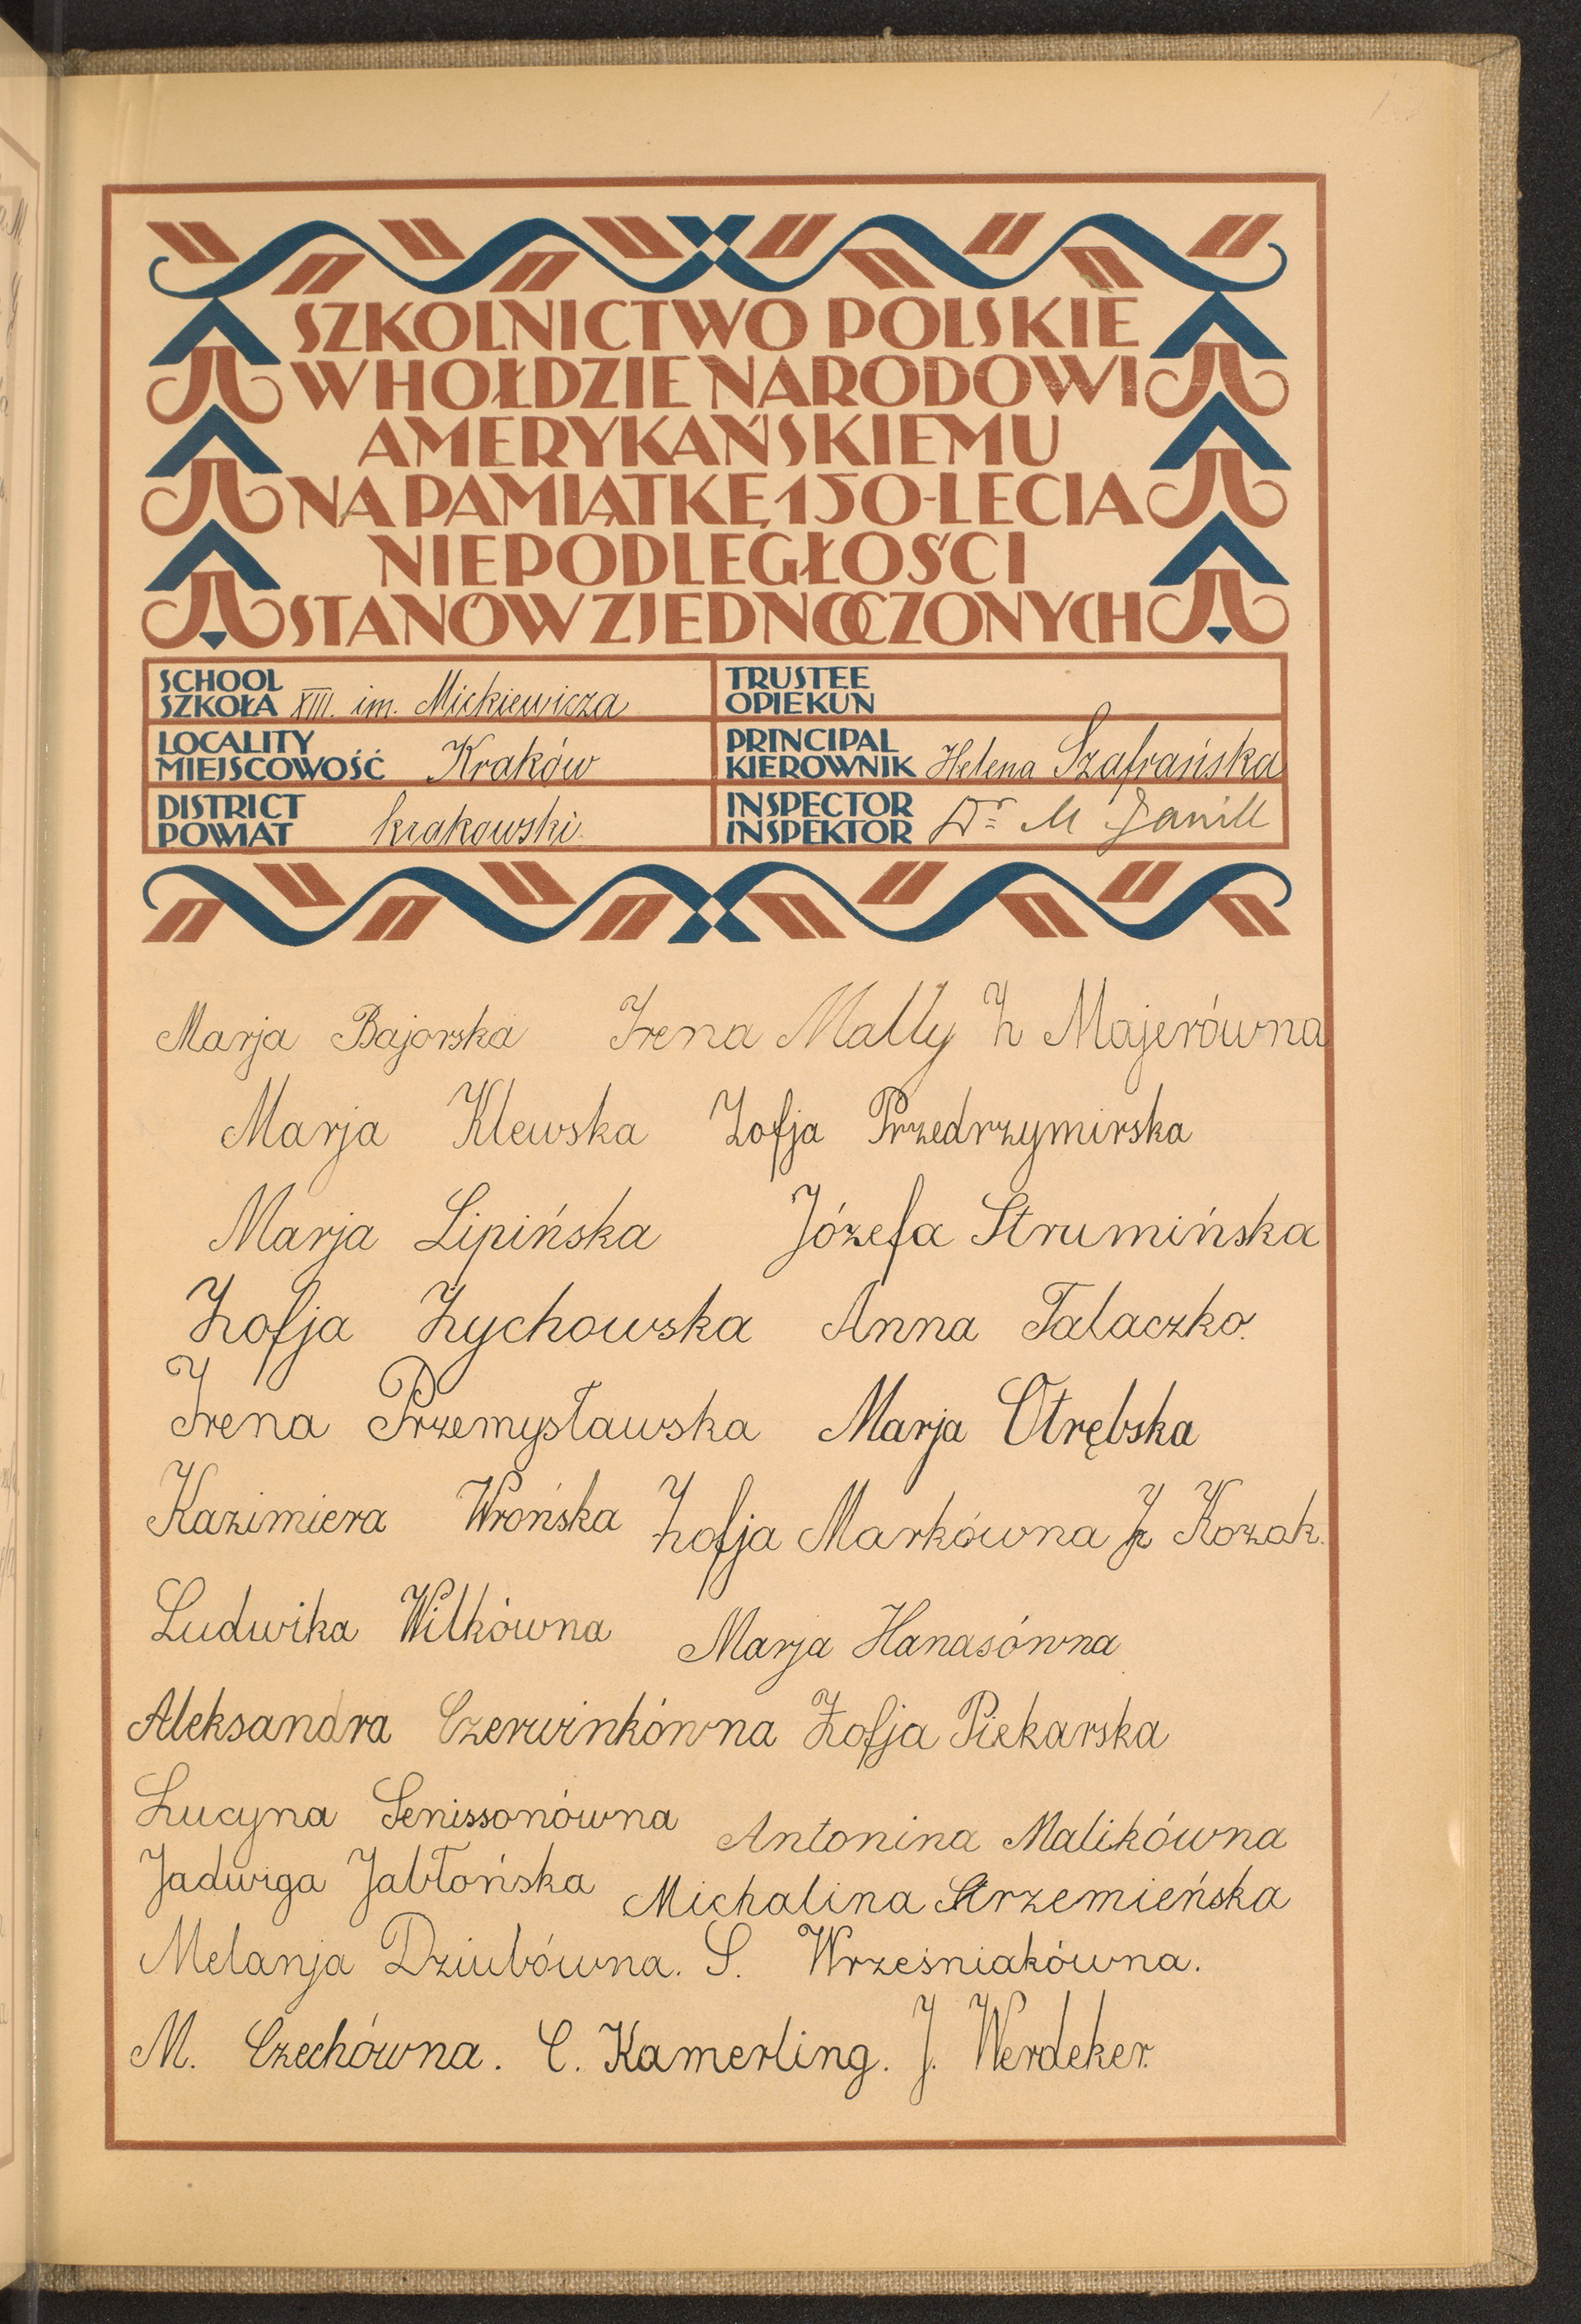 SZKOLNICTWO POLSKIE
W HOŁDZIE NARODOWI
AMERYKAŃSKIEMU
NA PAMIĄTKĘ 150-LECIA
NIEPODLEGŁOŚCI
STANÓW ZJEDNOCZONYCH
SCHOOL
SZKOŁA XIII. im. Mickiewicza
TRUSTEE
OPIEKUN
LOCALITY
MIEJSCOWOŚĆ Kraków
PRINCIPAL
KIEROWNIK Helena Szafrańska
DISTRICT
POWIAT krakowski.
INSPECTOR
INSPEKTOR Dr M Janill
Marja Bajorska Irena Mally Z Majerówna
Marja Klewska Zofja Przedrzymirska
Marja Lipińska Józefa Strumińska
Zofja Zychowska Anna Talaczko.
Irena Przemysławska Marja Otrębska
Kazimiera Wrońska Zofja Markówna J Kozak.
Ludwika Wilkówna Marja Hanasówna
Aleksandra Czerwinkówna Zofja Piekarska
Lucyna Senissonówna Antonina Malikówna
Jadwiga Jabłońska Michalina Strzemieńska
Melanja Dziubówna. S. Wrześniakówna.
M. Czechówna. C. Kamerling. J. Werdeker.